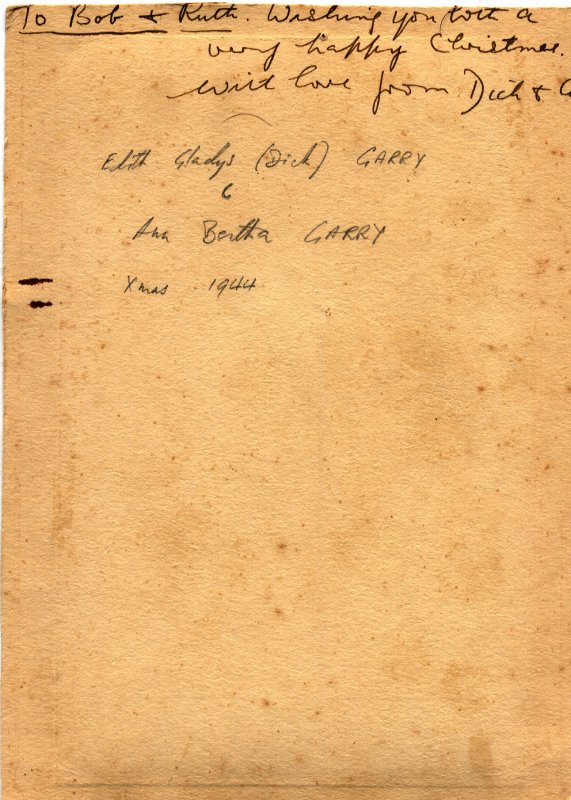 To Bob & Ruth. Wishing you both a
very happy Christmas.
with love from Dick &
Edith Gladys (Dick) GARRY
&
Ana Bertha GARRY
Xmas 1944